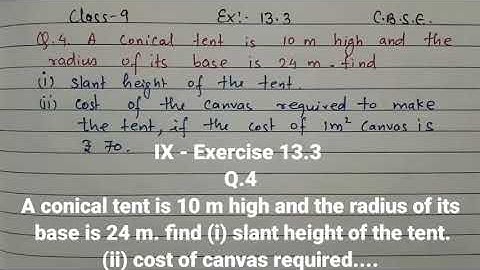 Class-9 Ex:- 13.3 C.B.S.E.
Q.4. A conical tent is 10 m high and the
radius of its base is 24 m. find
(i) slant height of the tent.
(ii) cost of the canvas required to make
the tent, if the cost of 1m² canvas is
₹ 70.
IX - Exercise 13.3
Q.4
A conical tent is 10 m high and the radius of its
base is 24 m. find (i) slant height of the tent.
(ii) cost of canvas required....